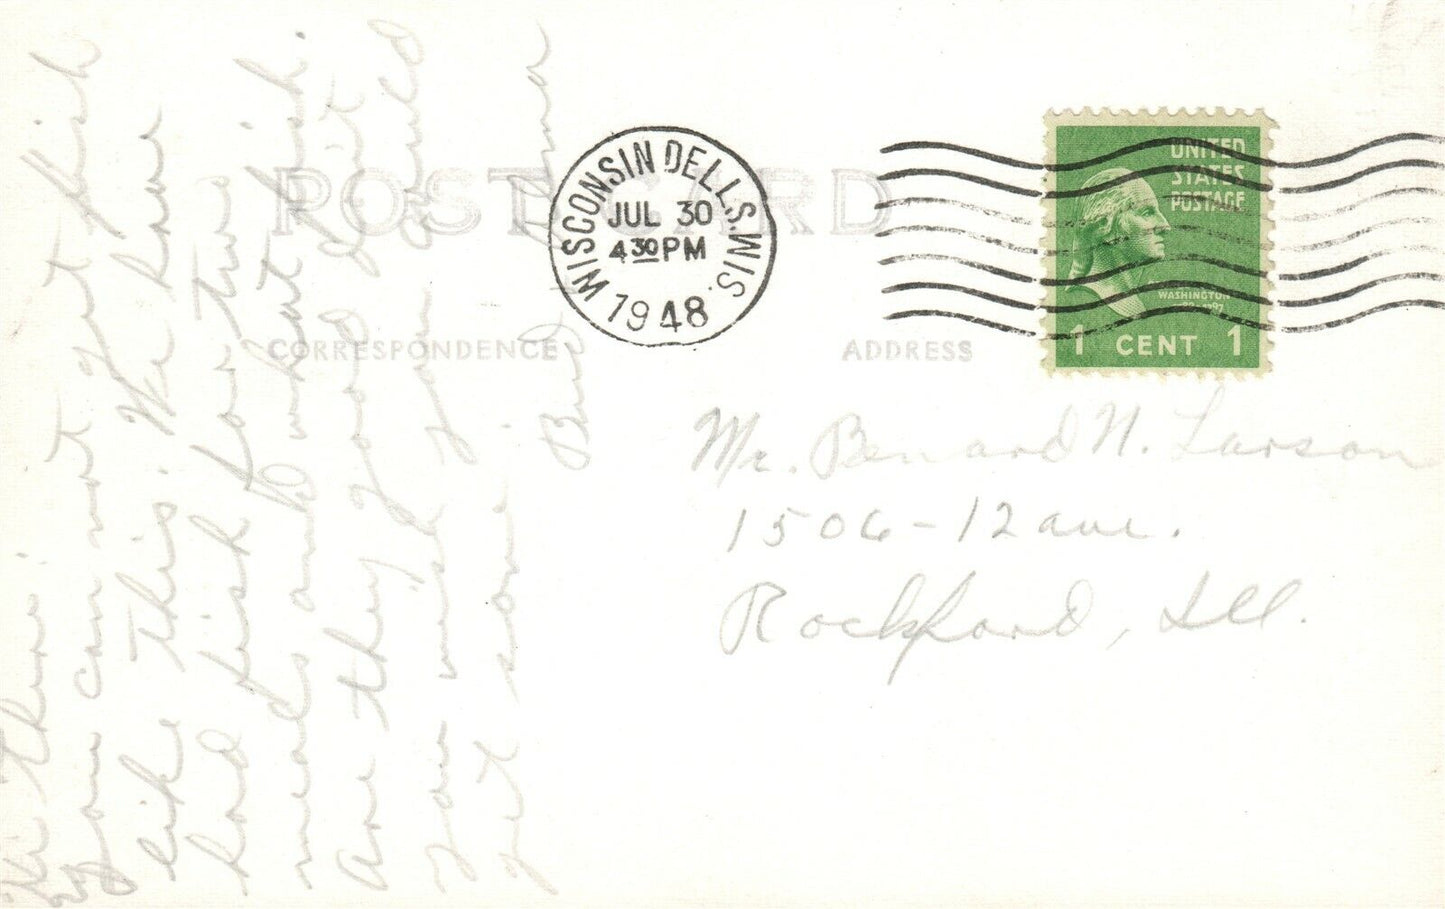 POST CARD
WISCONSIN DELLS, WIS.
JUL 30
4 30 PM
1948
UNITED
STATES
POSTAGE
WASHINGTON
1 CENT 1
CORRESPONDENCE
ADDRESS
Hi there:
you can not get fish
like this. We have
had fish for two
meals and what fish.
Are they good, but
you wish you could
get some.
Bud
Mr. Benard N. Larson
1506-12 ave.
Rockford, Ill.